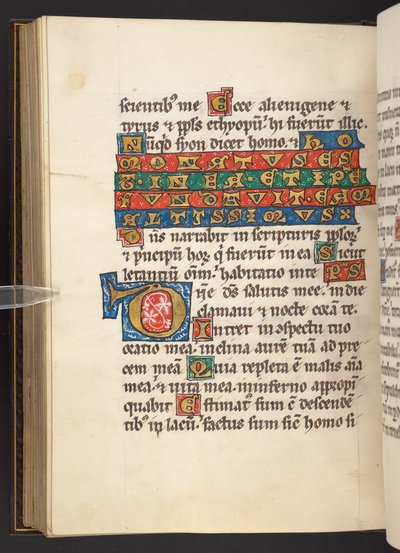 scientib᷒ me Ecce alienigene ⁊
tyrus ⁊ ppl̄s ethyopū hi fuerūt illic.
Nūqd̓ syon dicet homo. ⁊ ho
MO NATUS EST
IN EA ET IPE
FUNDAVIT EAM
ALTISSIMUS
Dn̄s narrabit in scripturis pp̄loꝝ
⁊ pncipū hoꝝ q̓ fuerūt in ea Sicut
letantiū oīm habitatio in te PS
Dn̄e ds̄ salutis mee in die
clamaui ⁊ nocte corā te.
Intret in cspectu tuo
oratio mea inclina aurē tuā ad pre
cem meā Quia repleta ē malis aīa
mea ⁊ uita mea in inferno appropī
quabit Estimat᷒ sum cū descendē
tib᷒ in lacū factus sum sic̄ homo si